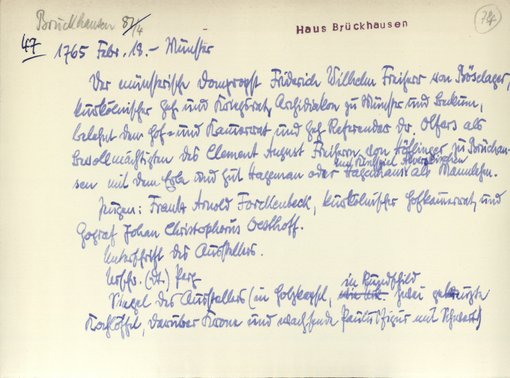 Brückhausen 87/4
Haus Brückhausen
74
47
1765 Febr. 19. – Münster
Der münsterische Dompropst Friderich Wilhelm Freiherr von Böselager,
kurkölnischer Geh. und Kriegsrat, Archidiakon zu Münster und
belehnt den Hof- und Kammerrat und Geh. Referendar Dr. Olfers als
Bevollmächtigten des Clement August Freiherrn von Höflinger zu Brückhau-
im Kirchspiel Alverskirchen
sen mit dem Erbe und Gut Hageman oder Hagenhaus als Mannlehn.
Zeugen: Frantz Arnold Forckenbeck, kurkölnischer Hofkammerrat, und
Gograf Johan Christophorus Oesthoff.
Unterschrift des Ausstellers.
Urschr. (Dt.) Perg.
in Rundschild
Siegel des Ausstellers (in Holzkapsel, zwei gekreuzte
Kochlöffel, darüber Krone und wachsende Paulusfigur mit Schwert)